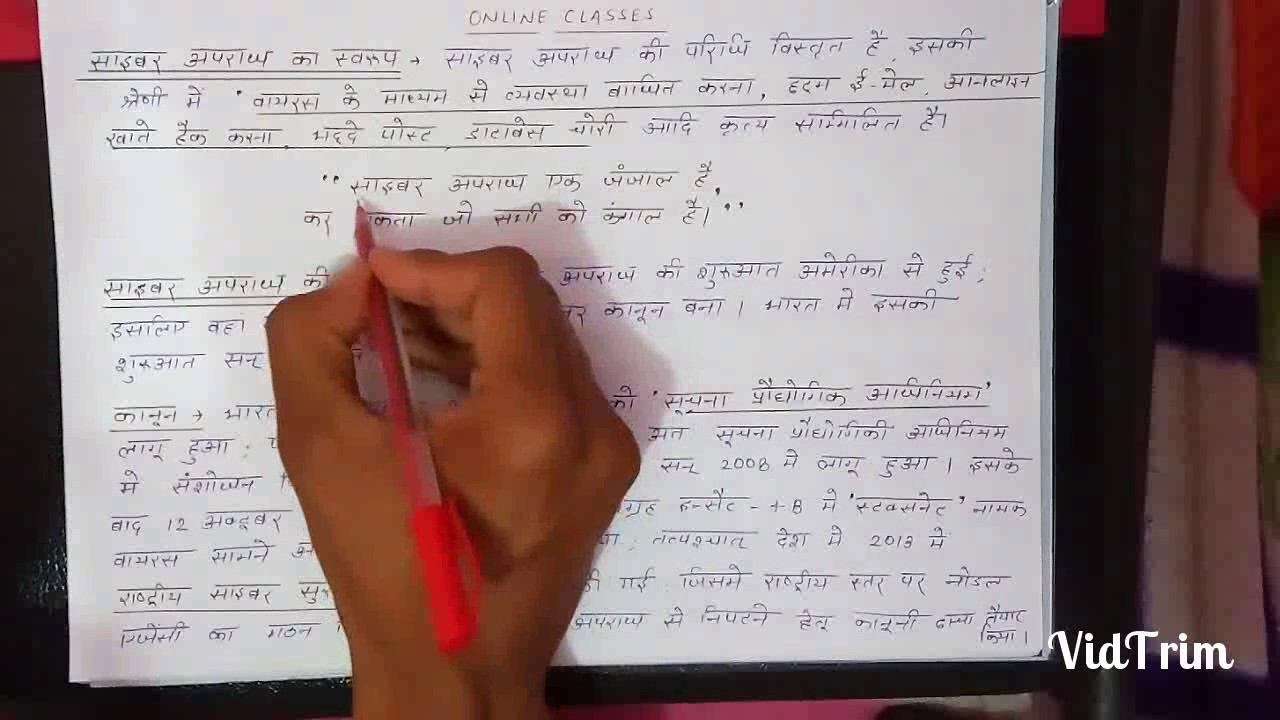 ONLINE CLASSES
साइबर अपराध का स्वरूप → साइबर अपराध की परिधि विस्तृत है, इसकी
श्रेणी में 'वायरस के माध्यम से व्यवस्था बाधित करना, छद्म ई-मेल, आनलाइन
खाते हैक करना, भद्दे पोस्ट, डाटाबेस चोरी आदि कृत्य सम्मिलित है।
"साइबर अपराध एक जंजाल है,
कर सकता जो सभी को कंगाल है।"
साइबर अपराध की अपराध की शुरुआत अमेरीका से हुई;
इसलिए वहां कानून बना। भारत मे इसकी
शुरुआत सन्
कानून → भारत को 'सूचना प्रौद्योगिक अधिनियम'
लागू हुआ; सूचना प्रौद्योगिकी अधिनियम
मे संशोधन सन् 2008 मे लागू हुआ। इसके
बाद 12 अक्टूबर इन्सैट - 4B मे 'स्टक्सनेट' नामक
वायरस सामने तत्पश्चात् देश मे 2013 मे
राष्ट्रीय साइबर की गई जिसमे राष्ट्रीय स्तर पर नोडल
एजेंसी का गठन अपराध से निपटने हेतू कानूनी ढाचा तैयार किया।
VidTrim